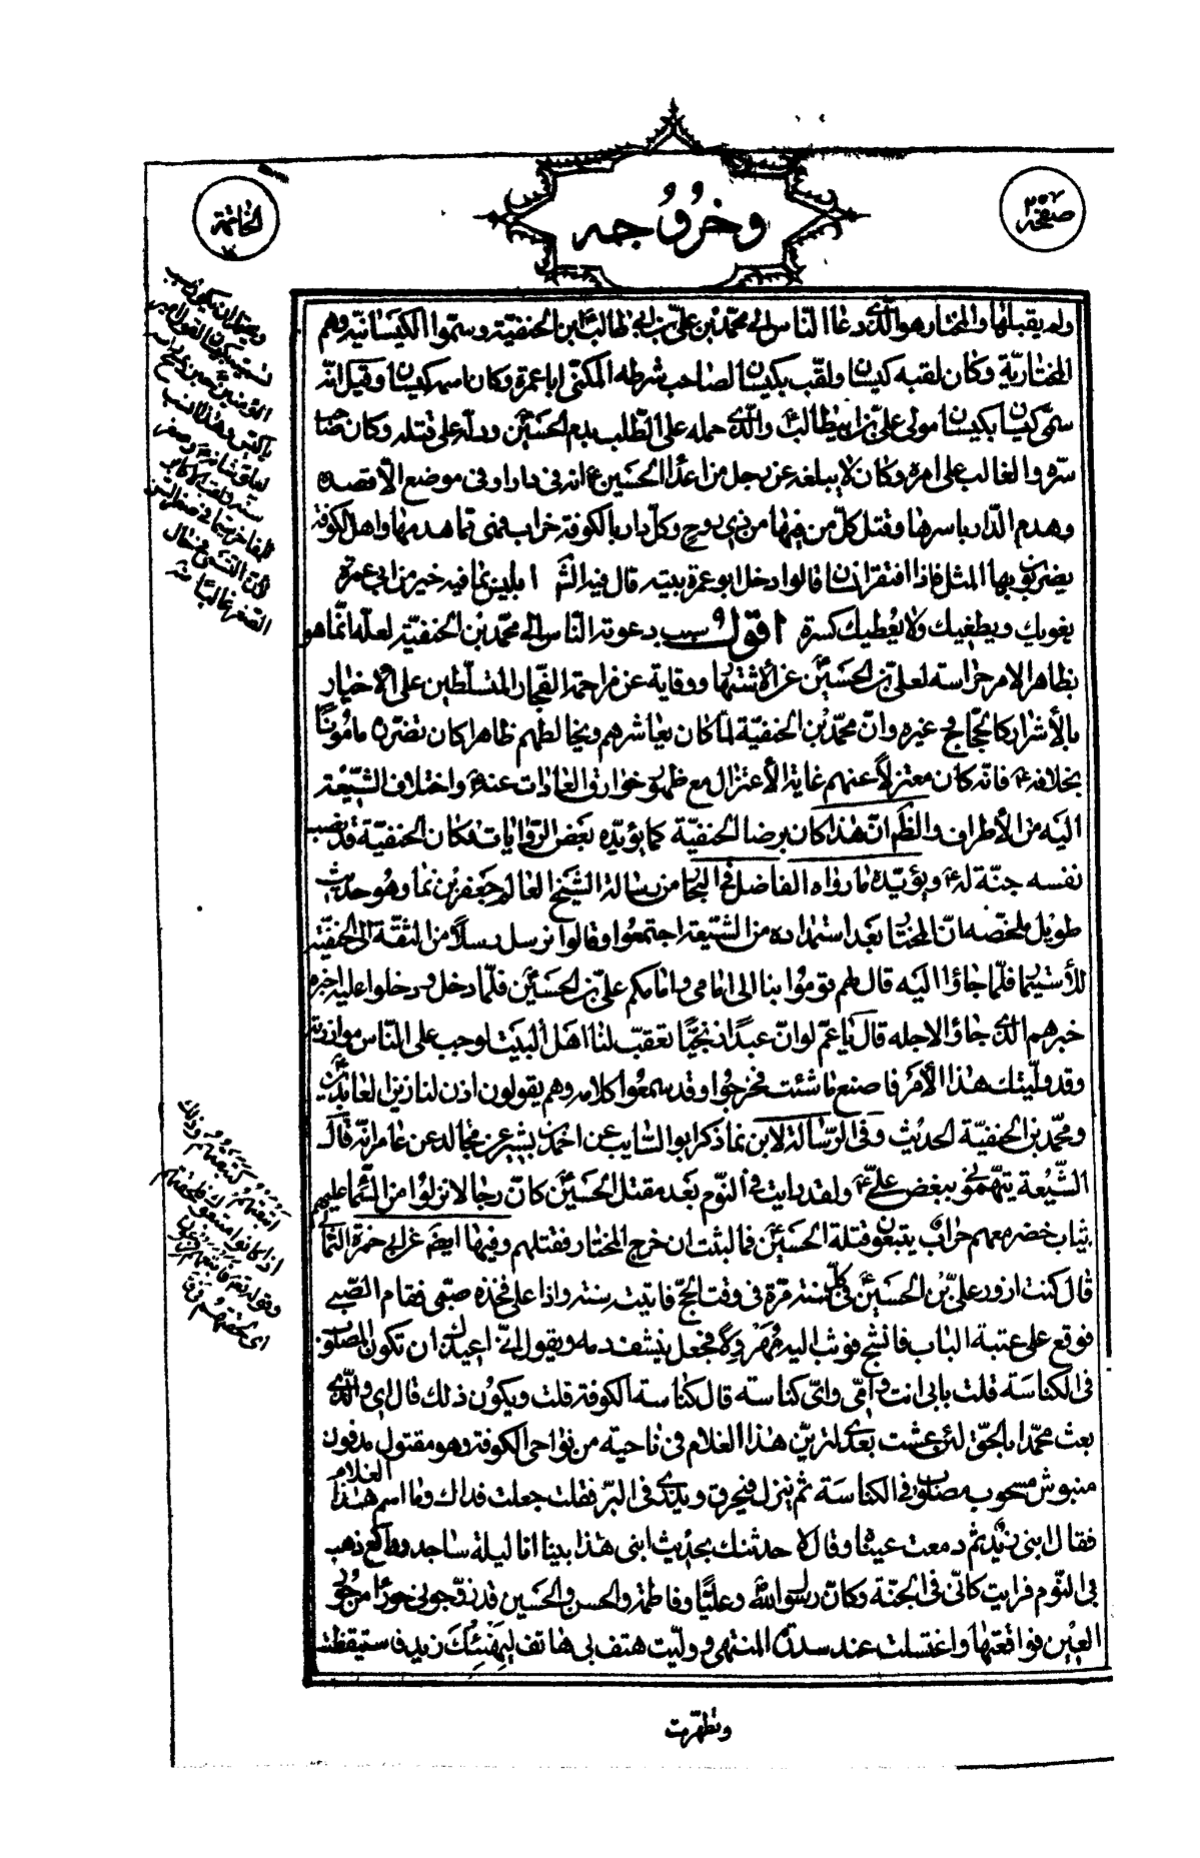 صفحه
وخروجه
الخاتمة
ولم يقبلها والمختار هو الّذى دعا الناس الى محمّد بن علىّ بن ابى طالبؑ ابن الحنفيّة وسمّوا الكيسانيّه وهم
المختاريّة وكان لقبه كيسان ولقّب بكيسان لصاحب شرطه المكنّى ابا عمرة وكان اسمه كيسان وقيل انّه
سمّى كيسان بكيسان مولى علىّ بن ابيطالبؑ والّذى حمله على الطلب بدم الحسينؑ ودلّه على قتلته وكان صاحب
سرّه والغالب على امره وكان لا يبلغه عن رجل من اعداء الحسينؑ انه فى دار او فى موضع الّا قصده
وهدم الدّار باسرها وقتل كلّ من فيها من ذى روح وكلّ دار بالكوفة خراب فهى ممّا هدمها واهل الكوفة
يضربون بها المثل فاذا افتقر انسان قالوا دخل ابو عمرة بيته قال فيه الشّ ابليس بما فيه خير من ابى عمرة
يغويك ويطغيك ولا يعطيك كسرة اقول وسبب دعوته النّاس الى محمّد بن الحنفيّة لعلّه انّما هو
بظاهر الامر حراسة لعلىّ بن الحسينؑ عن الاشتهار ووقاية عن مزاحمة الفجّار المتسلّطين على الاخيار
بالاشرار كالحجّاج وغيره وانّ محمّد بن الحنفيّة لمّا كان يعاشرهم ويخالطهم ظاهرا كان تضرّره مامونًا
بخلافهؑ فانّه كان معتزلًا عنهم غاية الاعتزال مع ظهور خوارق العادات عنهؑ واختلاف الشّيعة
اليه من الأطراف والظّم انّ هذا كان برضا الحنفيّة كما يؤيّده بعض الرّوايات فكان الحنفيّة قد نصب
نفسه جنّة لهؑ ويؤيّده ما رواه الفاضل فى البحار من رسالة الشّيخ العالم جعفر بن نما وهو حديث
طويل ملخّصه انّ المختار بعد استمداده من الشّيعة اجتمعوا وقالوا نرسل رسلًا من الثقة الى الحنفيّة
للأستيمار فلمّا جاؤا اليه قال لهم قوموا بنا الى امامى وامامكم علىّ بن الحسينؑ فلمّا دخل ودخلوا عليه اخبره
خبرهم الّذى جاؤا لاجله قال يا عمّ لو انّ عبدًا زنجيًّا تعصّب لنا اهل البيت لوجب على النّاس موازرته
وقد ولّيتك هذا الأمر فاصنع ما شئت فخرجوا وقد سمعوا كلامه وهم يقولون اذن لنا زين العابدينؑ
ومحمّد بن الحنفيّة الحديث وفى الرّسالة لابن نما ذكر ابو السّايب عن احمد بن بشير عن مجالد عن عامر انّه قال
الشّيعة يتّهمونى ببغض علىّؑ ولقد رايت فى النّوم بعد مقتل الحسينؑ كانّ رجالا نزلوا من السّماء عليهم
ثياب خضر معهم حراب يتبعون قتلة الحسينؑ فما لبثت ان خرج المختار فقتلهم وفيها ايضم عن ابى حمزة الثمالى
قال كنت ازور علىّ بن الحسينؑ فى كلّ سنة مرّة فى وقت الحجّ فاتيته سنة واذا على فخذه صبىّ فقام الصّبى
فوقع على عتبة الباب فانشجّ فوثب اليه مهرولًا فجعل ينشف دمه ويقول انّى اعيذك ان تكون المصلوب
فى الكناسة قلت بابى انت وامّى واىّ كناسة قال كناسة الكوفة قلت ويكون ذلك قال اى والّذى
بعث محمّدا بالحقّ لئن عشت بعدى لترينّ هذا الغلام فى ناحية من نواحى الكوفة وهو مقتول مدفون
منبوش مسحوب مصلوب فى الكناسة ثم ينزل فيحرق ويذرى فى البرّ فقلت جعلت فداك وما اسم هذا الغلام
فقال ابنى زيد ثم دمعت عيناه وقال لاحدثنك بحديث ابنى هذا بينا انا ليلة ساجد وراكع ذهب
بى النّوم فرايت كانّى فى الجنّة وكانّ رسول اللّه وعليًّا وفاطمة والحسن والحسين قد زوّجونى حوراء من حور
العين فواقعتها واغتسلت عند سدرة المنتهى وولّيت هتف بى هاتف ليهنئك زيد فاستيقظت
وتطهّرت